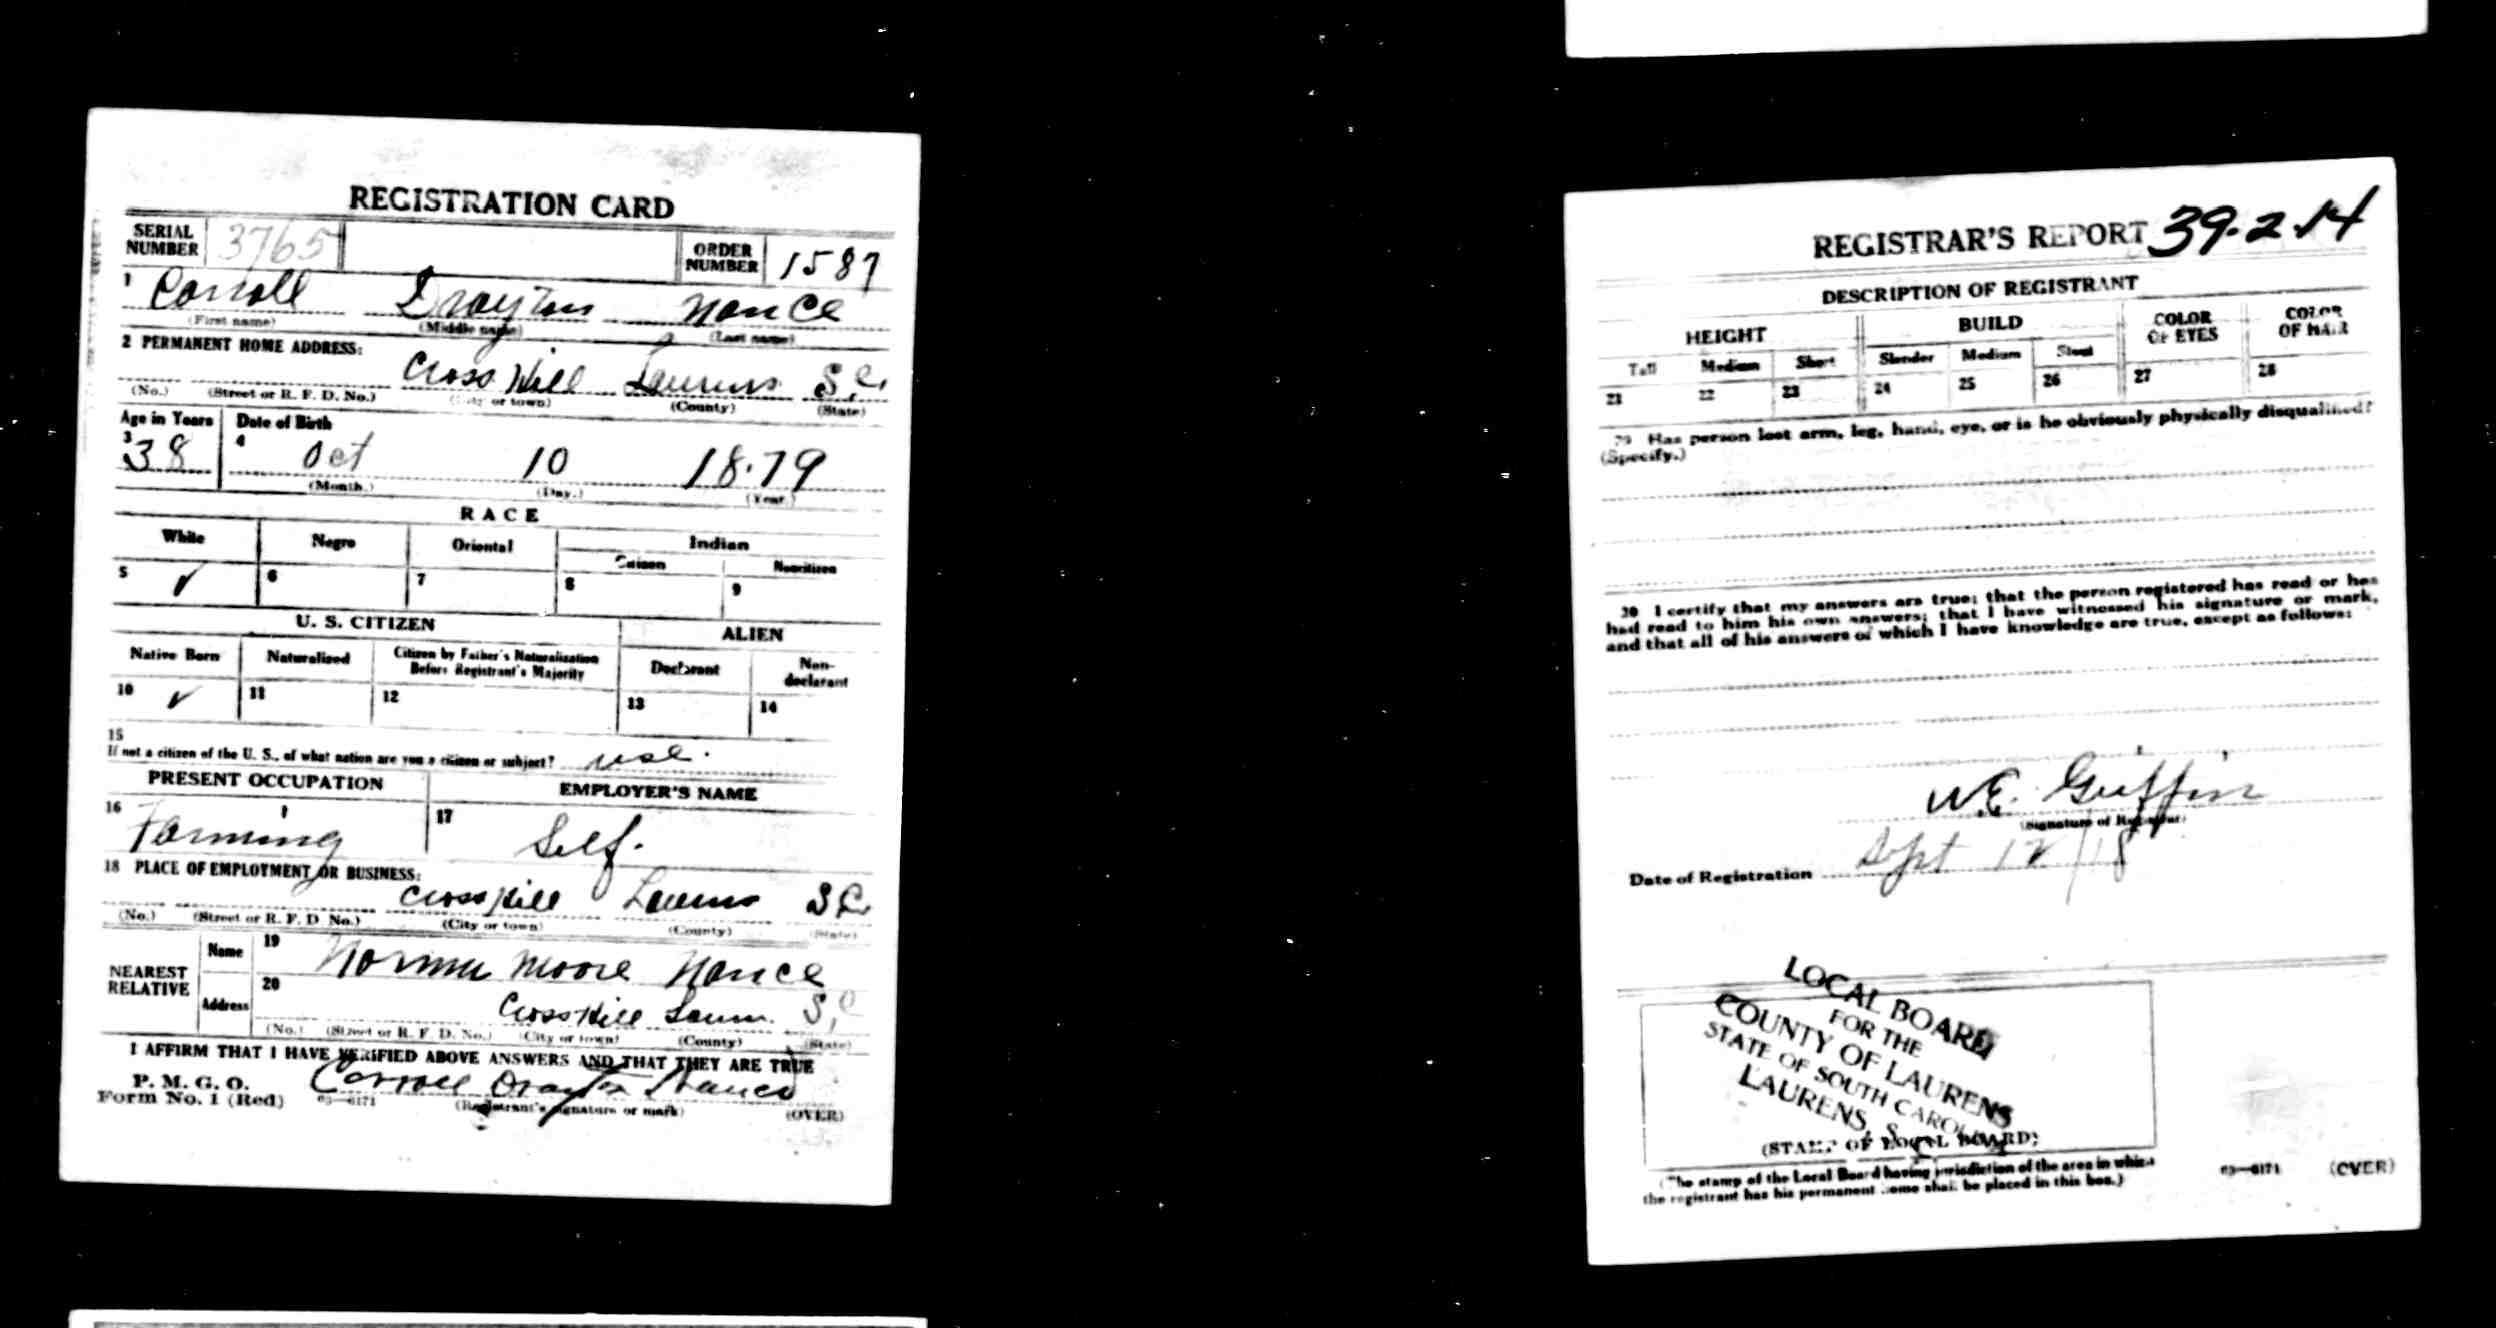 REGISTRATION CARD
SERIAL NUMBER 3765 ORDER NUMBER 1587
1 Carroll Drayton Nance
(First name) (Middle name) (Last name)
2 PERMANENT HOME ADDRESS:
Cross Hill Laurens S.C.
(No.) (Street or R. F. D. No.) (City or town) (County) (State)
Age in Years Date of Birth
3 38 4 Oct 10 18.79
(Month.) (Day.) (Year.)
RACE
White Negro Oriental Indian
Citizen Noncitizen
5 ✓ 6 7 8 9
U. S. CITIZEN ALIEN
Native Born Naturalized Citizen by Father's Naturalization Before Registrant's Majority Declarant Non-declarant
10 ✓ 11 12 13 14
15
If not a citizen of the U. S., of what nation are you a citizen or subject?
PRESENT OCCUPATION EMPLOYER'S NAME
16 Farming 17 Self.
18 PLACE OF EMPLOYMENT OR BUSINESS:
Cross Hill Laurens S C
(No.) (Street or R. F. D. No.) (City or town) (County) (State)
NEAREST RELATIVE Name 19 Norma Moore Nance
Address 20 Cross Hill Laurens S.C
(No.) (Street or R. F. D. No.) (City or town) (County) (State)
I AFFIRM THAT I HAVE VERIFIED ABOVE ANSWERS AND THAT THEY ARE TRUE
P. M. G. O.
Form No. 1 (Red) 03—6171 Carroll Drayton Nance
(Registrant's signature or mark) (OVER)
REGISTRAR'S REPORT 39.2.14
DESCRIPTION OF REGISTRANT
HEIGHT BUILD COLOR OF EYES COLOR OF HAIR
Tall Medium Short Slender Medium Stout
21 22 23 24 25 26 27 28
29 Has person lost arm, leg, hand, eye, or is he obviously physically disqualified?
(Specify.)
30 I certify that my answers are true; that the person registered has read or has
had read to him his own answers; that I have witnessed his signature or mark,
and that all of his answers of which I have knowledge are true, except as follows:
W.E. Griffin
(Signature of Registrar)
Date of Registration Sept 12/18
LOCAL BOARD
FOR THE
COUNTY OF LAURENS
STATE OF SOUTH CAROLINA
LAURENS, S.
(STAMP OF LOCAL BOARD)
(The stamp of the Local Board having jurisdiction of the area in which
the registrant has his permanent home shall be placed in this box.)
03—6171 (OVER)